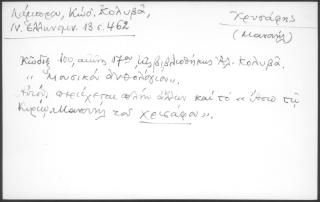 Λάμπρου, Κώδ. Κολυβᾶ,
Ν. Ἑλληνομν. 13 σ. 462
Χρυσάφης
(Μανουήλ)
Κῶδιξ 100, αἰῶνος 17ου τῆς βιβλιοθήκης Ἀλ. Κολυβᾶ.
"Μουσικὴ ἀνθολογία".
περιέχεται πλὴν ἄλλων καὶ τὸ "
Κυρίου Μανουὴλ τοῦ Χρυσάφου".